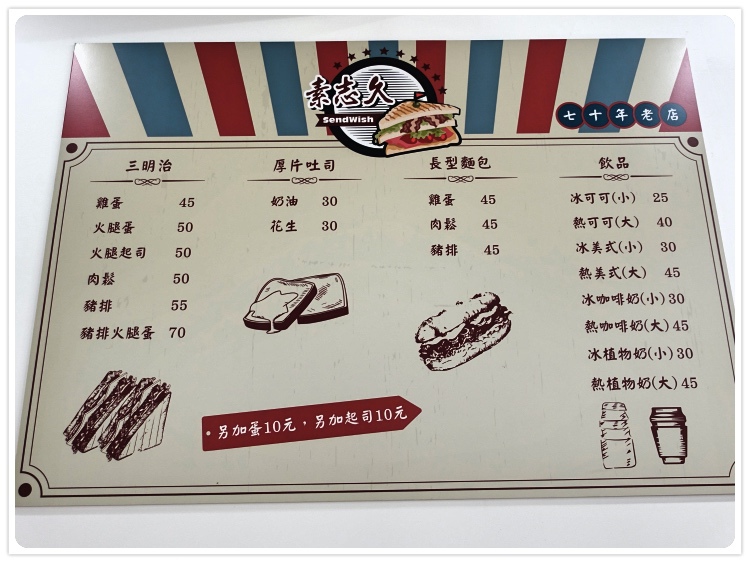 素志久
SendWish
七十年老店
三明治
雞蛋 45
火腿蛋 50
火腿起司 50
肉鬆 50
豬排 55
豬排火腿蛋 70
厚片吐司
奶油 30
花生 30
長型麵包
雞蛋 45
肉鬆 45
豬排 45
飲品
冰可可(小) 25
熱可可(大) 40
冰美式(小) 30
熱美式(大) 45
冰咖啡奶(小) 30
熱咖啡奶(大) 45
冰植物奶(小) 30
熱植物奶(大) 45
•另加蛋10元，另加起司10元